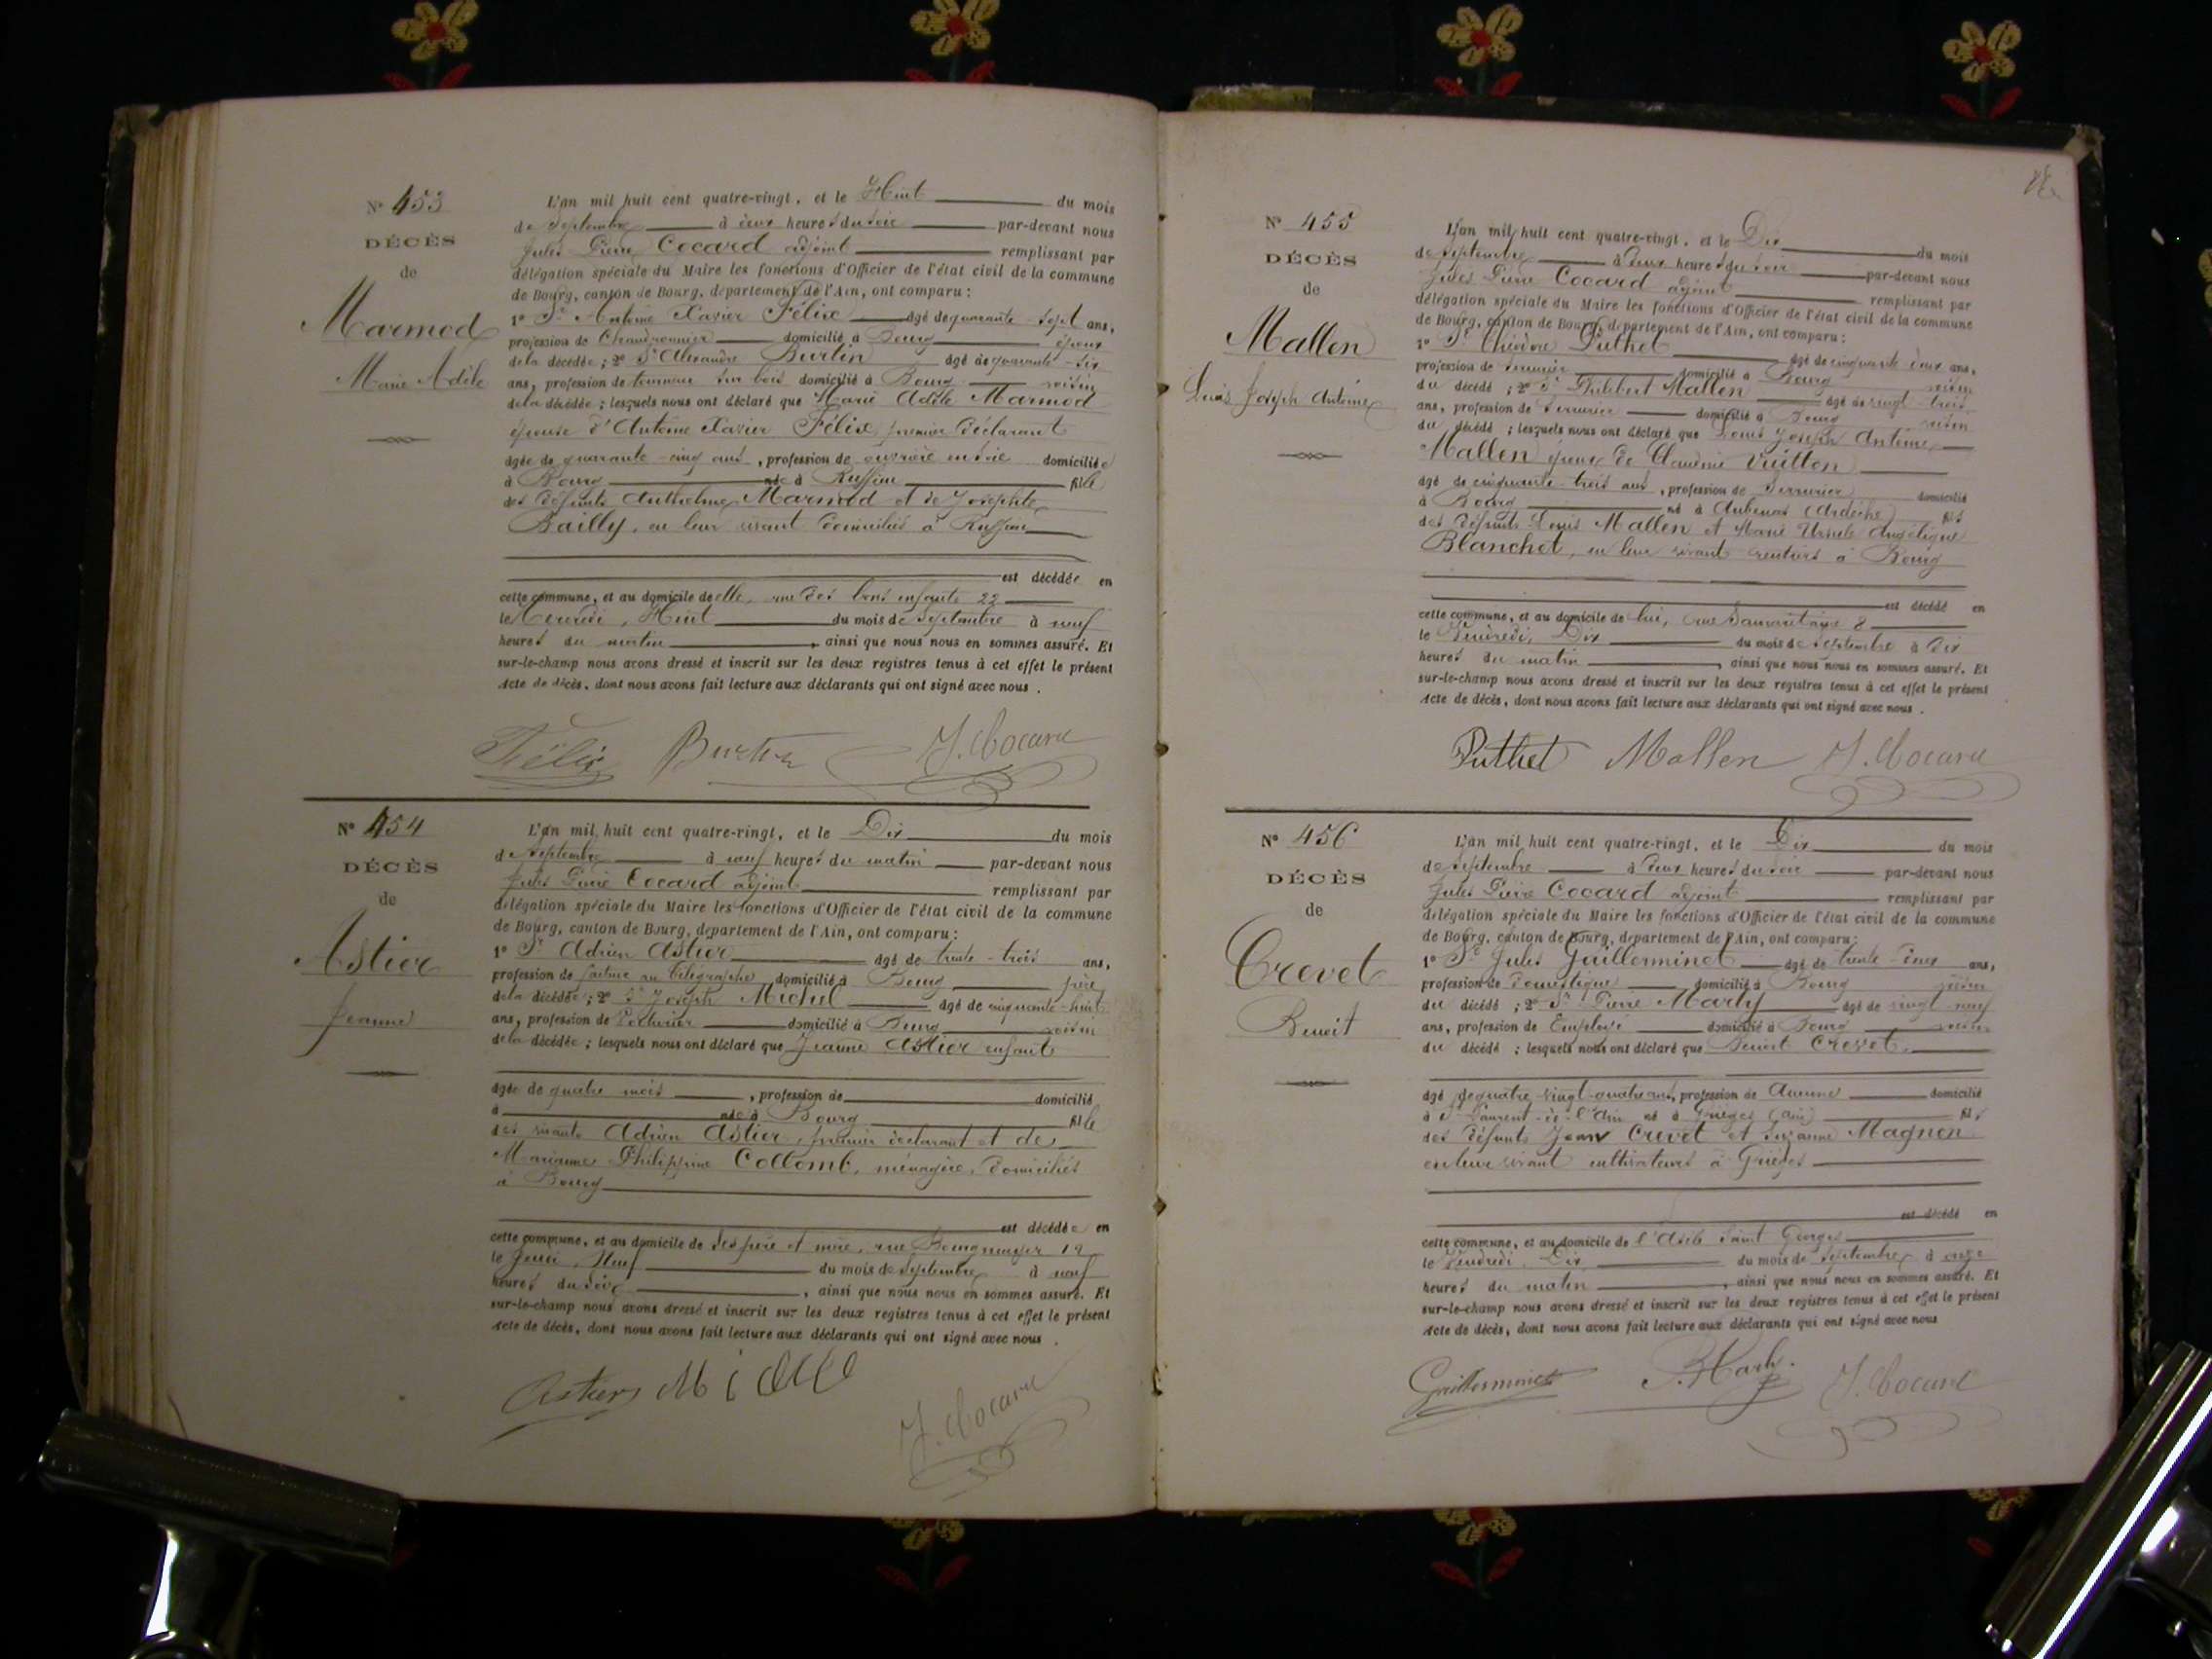 N° 453
DÉCÈS
de
Marmod
Marie Adèle
L'an mil huit cent quatre-vingt, et le Huit du mois
de Septembre à deux heures du soir par-devant nous
Jules Pierre Cocard adjoint remplissant par
délégation spéciale du Maire les fonctions d'Officier de l'état civil de la commune
de Bourg, canton de Bourg, département de l'Ain, ont comparu :
1° Sr Antoine Xavier Félix âgé de quarante-sept ans,
profession de Chaudronnier domicilié à Bourg époux
de la décédée ; 2° Sr Alexandre Burtin âgé de quarante-six
ans, profession de tourneur sur bois domicilié à Bourg voisin
de la décédée ; lesquels nous ont déclaré que Marie Adèle Marmod
épouse d'Antoine Xavier Félix, premier déclarant
âgée de quarante-cinq ans, profession de ouvrière en soie domiciliée
à Bourg née à Ruffieu fille
des défunts Anthelme Marmod et de Josephte
Bailly, en leur vivant domiciliés à Ruffieu
est décédée en
cette commune, et au domicile de elle, rue des bons enfants 22
le Mercredi, Huit du mois de Septembre à neuf
heures du matin, ainsi que nous nous en sommes assuré. Et
sur-le-champ nous avons dressé et inscrit sur les deux registres tenus à cet effet le présent
Acte de décès, dont nous avons fait lecture aux déclarants qui ont signé avec nous.
Félix Burtin J. Cocard
N° 454
DÉCÈS
de
Astier
Jeanne
L'an mil huit cent quatre-vingt, et le Dix du mois
de Septembre à neuf heures du matin par-devant nous
Jules Pierre Cocard adjoint remplissant par
délégation spéciale du Maire les fonctions d'Officier de l'état civil de la commune
de Bourg, canton de Bourg, département de l'Ain, ont comparu :
1° Sr Adrien Astier âgé de trente-trois ans,
profession de facteur au télégraphe domicilié à Bourg père
de la décédée ; 2° Sr Joseph Michel âgé de cinquante-huit
ans, profession de domicilié à Bourg voisin
de la décédée ; lesquels nous ont déclaré que Jeanne Astier enfant
âgée de quatre mois, profession de domicilié
à née à Bourg fille
des vivants Adrien Astier, premier déclarant et de
Marianne Philippine Collomb, ménagère, domiciliés
à Bourg
est décédée en
cette commune, et au domicile de ses père et mère, rue Bourgmayer 19
le Jeudi, Neuf du mois de Septembre à neuf
heures du soir, ainsi que nous nous en sommes assuré. Et
sur-le-champ nous avons dressé et inscrit sur les deux registres tenus à cet effet le présent
Acte de décès, dont nous avons fait lecture aux déclarants qui ont signé avec nous.
Astier Michel
J. Cocard
N° 455
DÉCÈS
de
Mallen
Louis Joseph Antoine
L'an mil huit cent quatre-vingt, et le Dix du mois
de Septembre à deux heures du soir par-devant nous
Jules Pierre Cocard adjoint remplissant par
délégation spéciale du Maire les fonctions d'Officier de l'état civil de la commune
de Bourg, canton de Bourg, département de l'Ain, ont comparu :
1° Sr Théodore Puthet âgé de cinquante deux ans,
profession de serrurier domicilié à Bourg voisin
du décédé ; 2° Sr Philibert Mallen âgé de vingt-trois
ans, profession de Serrurier domicilié à Bourg voisin
du décédé ; lesquels nous ont déclaré que Louis Joseph Antoine
Mallen époux de Claudine Vuitton
âgé de cinquante-trois ans, profession de Serrurier domicilié
à Bourg né à Aubenas (Ardèche) fils
des défunts Louis Mallen et Marie Ursule Angélique
Blanchet, en leur vivant rentiers à Bourg
est décédé en
cette commune, et au domicile de lui, rue Samaritaine 8
le Vendredi, Dix du mois de Septembre à dix
heures du matin, ainsi que nous nous en sommes assuré. Et
sur-le-champ nous avons dressé et inscrit sur les deux registres tenus à cet effet le présent
Acte de décès, dont nous avons fait lecture aux déclarants qui ont signé avec nous.
Puthet Mallen J. Cocard
N° 456
DÉCÈS
de
Crevet
Benoit
L'an mil huit cent quatre-vingt, et le Dix du mois
de Septembre à deux heures du soir par-devant nous
Jules Pierre Cocard adjoint remplissant par
délégation spéciale du Maire les fonctions d'Officier de l'état civil de la commune
de Bourg, canton de Bourg, département de l'Ain, ont comparu :
1° Sr Jules Guillerminet âgé de trente-cinq ans,
profession de domestique domicilié à Bourg voisin
du décédé ; 2° Sr Pierre Marly âgé de vingt-neuf
ans, profession de Employé domicilié à Bourg voisin
du décédé ; lesquels nous ont déclaré que Benoit Crevet,
âgé de quatre-vingt-quatre ans, profession de Aucune domicilié
à St Laurent-de-l'Ain né à Grièges (Ain) fils
des défunts Jean Crevet et Suzanne Magnon
en leur vivant cultivateurs à Grièges
est décédé en
cette commune, et au domicile de l'Asile Saint Georges
le Vendredi, Dix du mois de Septembre à onze
heures du matin, ainsi que nous nous en sommes assuré. Et
sur-le-champ nous avons dressé et inscrit sur les deux registres tenus à cet effet le présent
Acte de décès, dont nous avons fait lecture aux déclarants qui ont signé avec nous
Guillerminet P. Marly J. Cocard